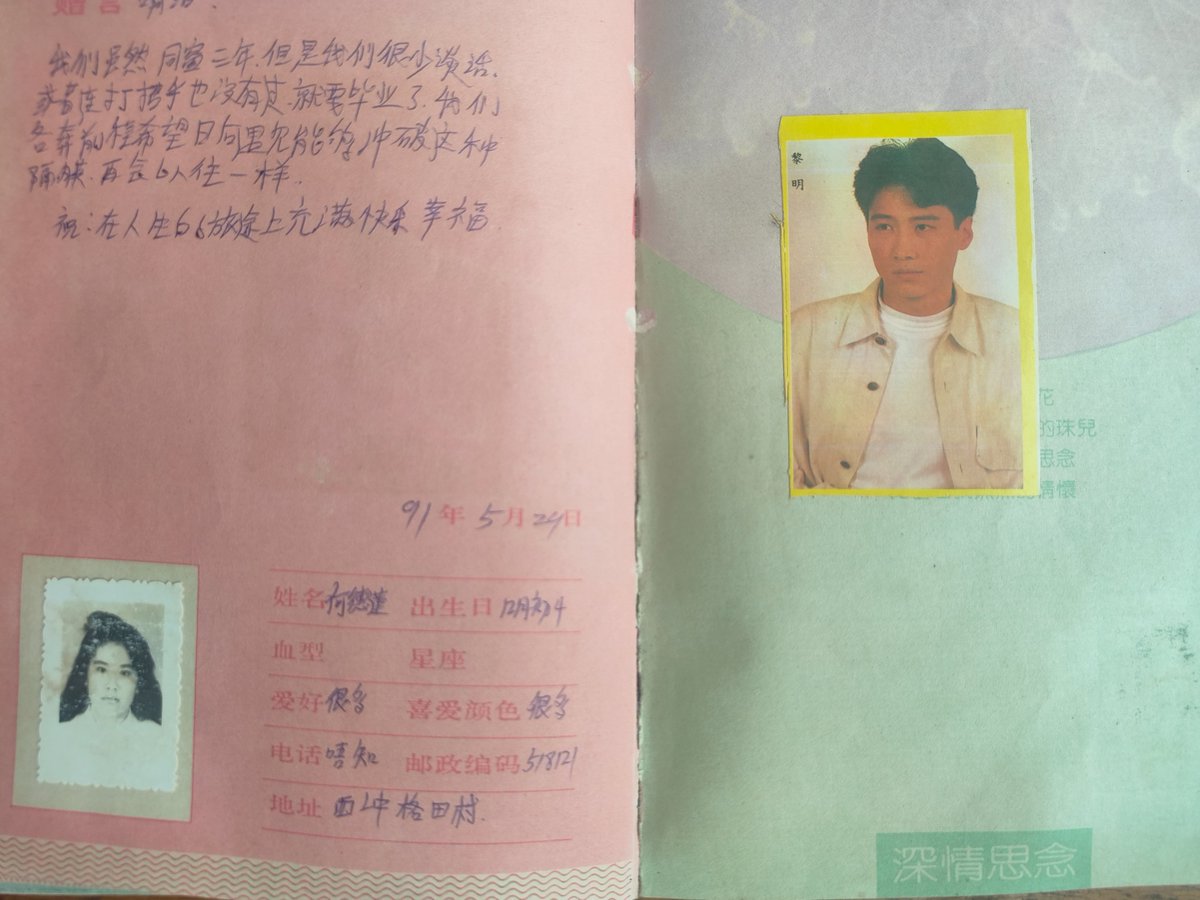 赠言
我们虽然同窗三年.但是我们很少谈话.
就要毕业了.我们
各奔前程希望日向遇见能够冲破这种
隔膜.再会如以往一样.
祝:在人生的旅途上充满快乐幸福.
91年5月24日
姓名何德莲 出生日12月初4
血型 星座
爱好很多 喜爱颜色很多
电话唔知 邮政编码518121
地址 西冲格田村.
黎
明
花
的珠兒
思念
情懷
深情思念